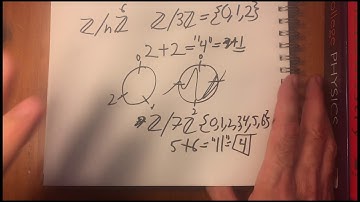 Z/nZ 6 Z/3Z={0,1,2}
2+2="4"=1
0 0
2 1 2
Z/7Z {0,1,2,3,4,5,6}
5+6="11"=4
PHYSICS